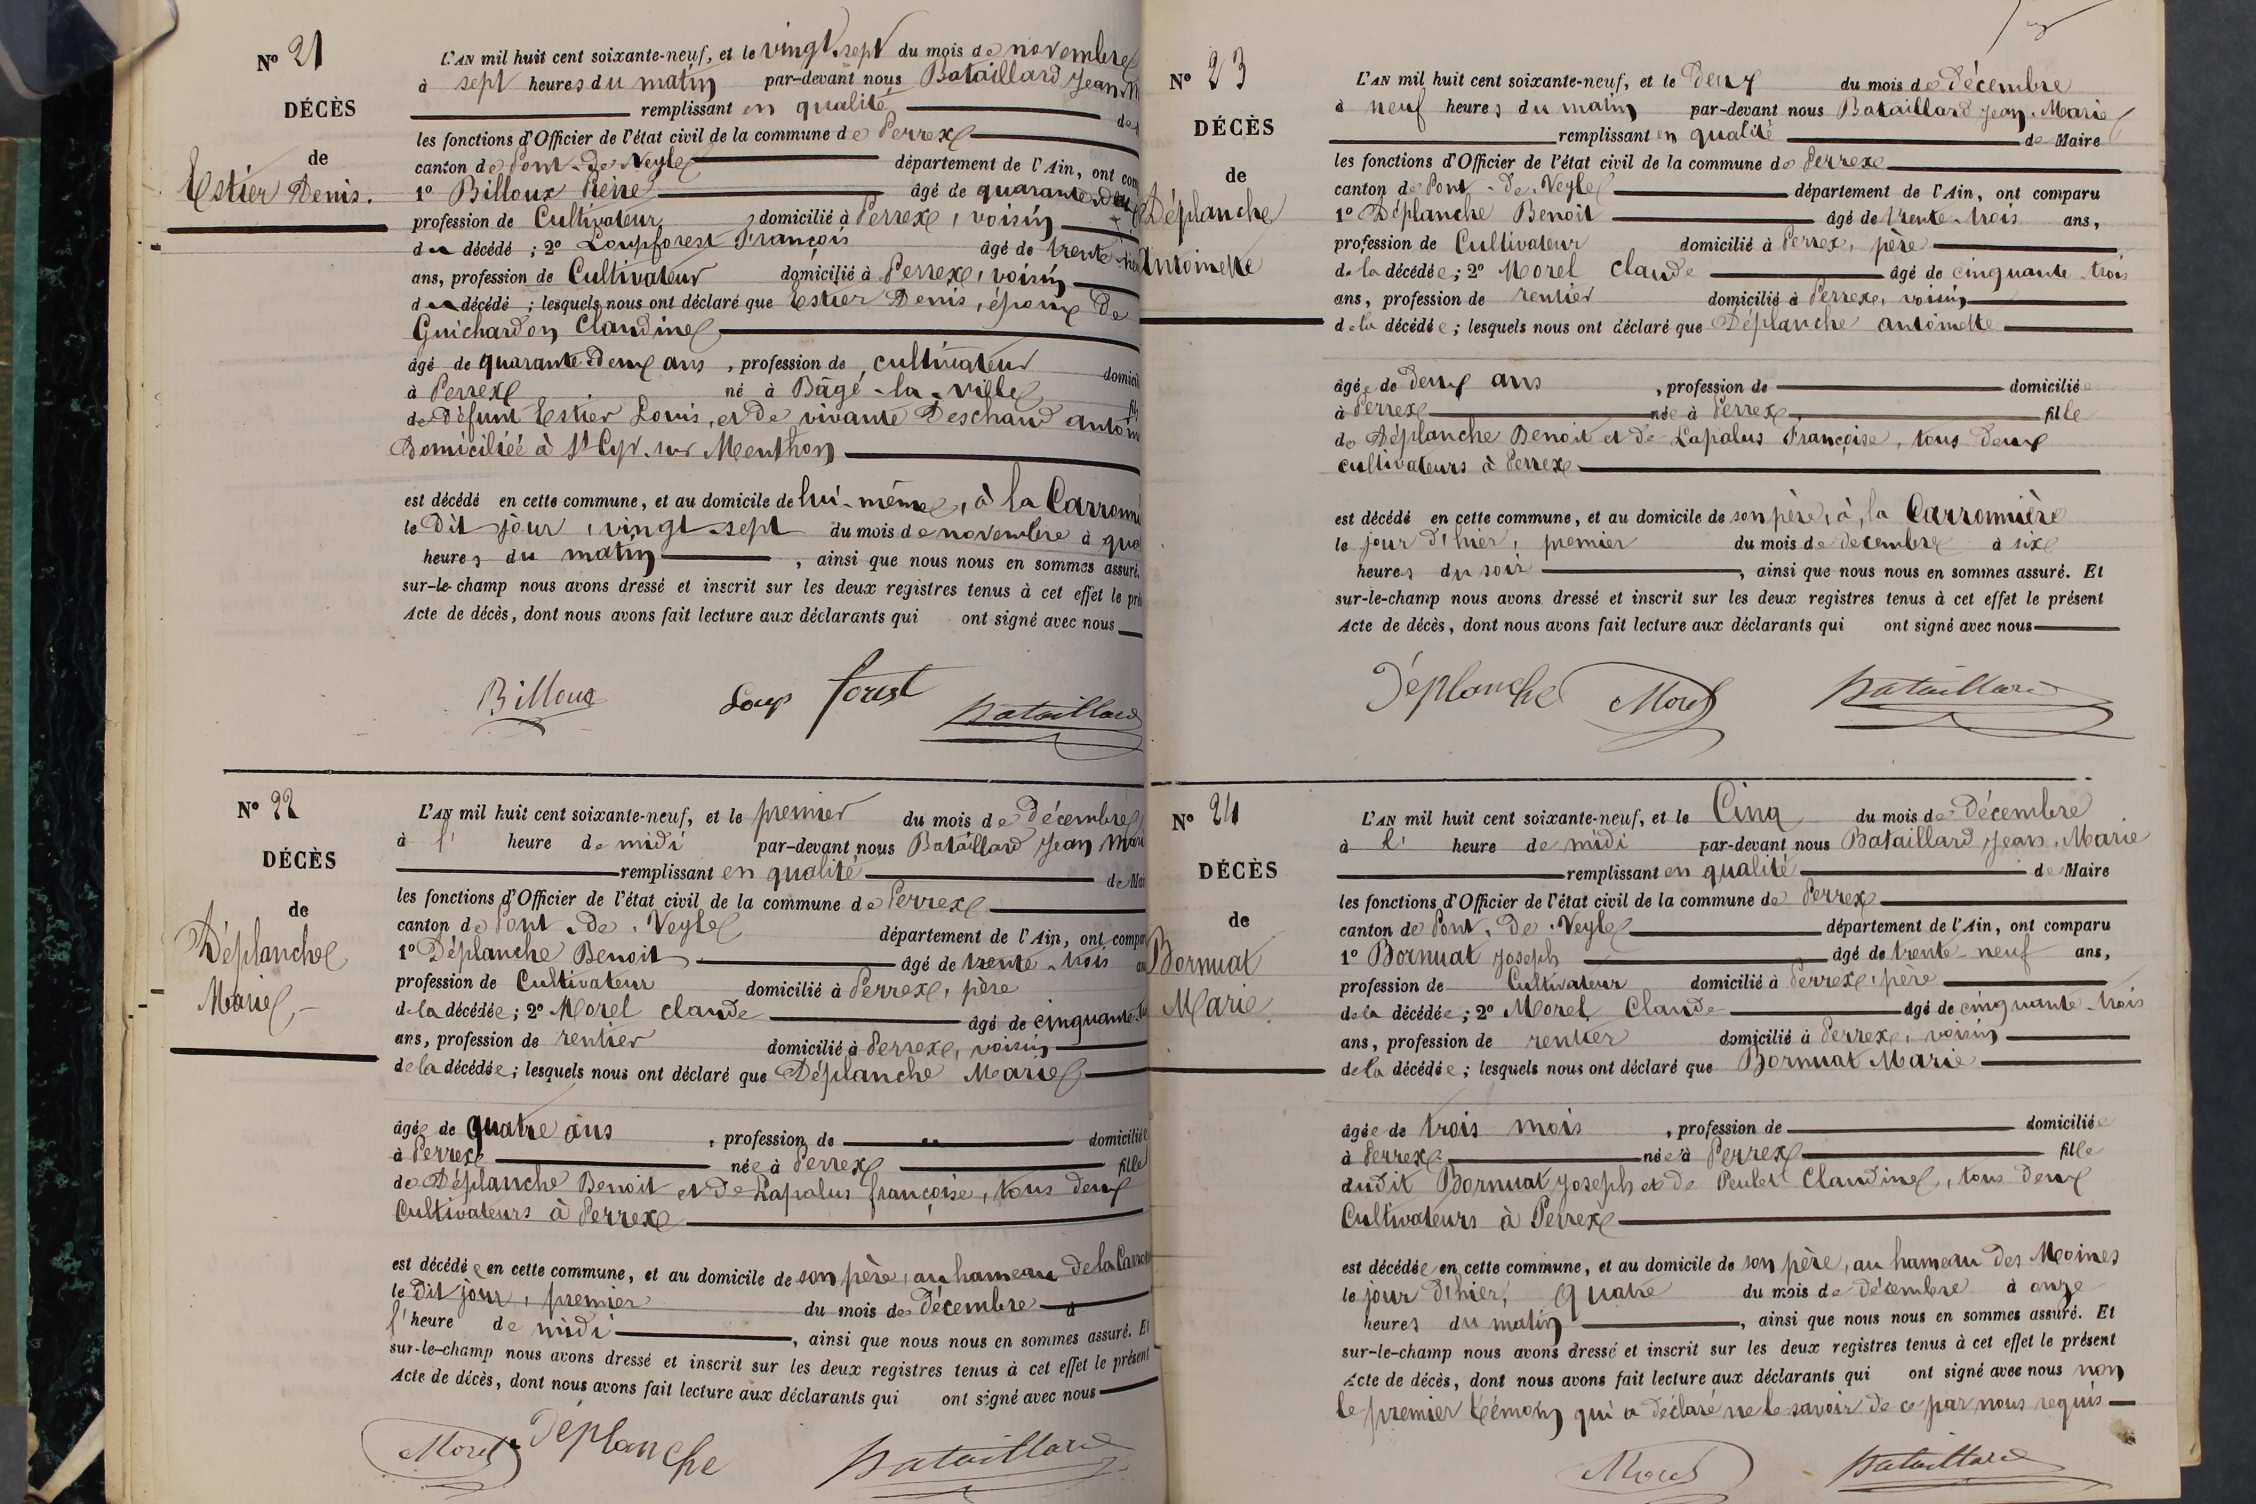 N° 21
DÉCÈS
de
Estier Denis.
L'AN mil huit cent soixante-neuf, et le vingt-sept du mois de novembre
à sept heures du matin par-devant nous Bataillard Jean M
remplissant en qualité de
les fonctions d'Officier de l'état civil de la commune de Perrex
canton de Pont-de-Veyle département de l'Ain, ont com
1° Billoux Réné âgé de quarante-deux
profession de Cultivateur domicilié à Perrex, voisin
du décédé ; 2° Loupforest François âgé de trente
ans, profession de Cultivateur domicilié à Perrex, voisin
du décédé ; lesquels nous ont déclaré que Estier Denis, époux de
Guichardon Claudine
âgé de quarante-deux ans, profession de cultivateur domicil
à Perrex né à Bâgé-la-ville fils
de défunt Estier Louis, et de vivante Deschaud antoin
Domiciliée à St Cyr-sur Menthon
est décédé en cette commune, et au domicile de lui-même, à la Carronni
le dit jour, vingt-sept du mois de novembre à qua
heures du matin, ainsi que nous nous en sommes assuré.
sur-le-champ nous avons dressé et inscrit sur les deux registres tenus à cet effet le pré
Acte de décès, dont nous avons fait lecture aux déclarants qui ont signé avec nous
Billoux Loup forest Bataillard
N° 22
DÉCÈS
de
Déplanche
Marie
L'AN mil huit cent soixante-neuf, et le premier du mois de décembre
à l' heure de midi par-devant nous Bataillard Jean Mari
remplissant en qualité de Mai
les fonctions d'Officier de l'état civil de la commune de Perrex
canton de Pont-de-Veyle département de l'Ain, ont compar
1° Déplanche Benoit âgé de trente-trois an
profession de Cultivateur domicilié à Perrex, père
de la décédée ; 2° Morel claude âgé de cinquante-
ans, profession de rentier domicilié à Perrex, voisin
de la décédée ; lesquels nous ont déclaré que Déplanche Marie
âgée de quatre ans, profession de domiciliée
à Perrex née à Perrex fille
de Déplanche Benoit et de Lapalus françoise, tous deux
Cultivateurs à Perrex
est décédée en cette commune, et au domicile de son père, au hameau de la Carron
le dit jour, premier du mois de décembre à
l'heure de midi, ainsi que nous nous en sommes assuré. Et
sur-le-champ nous avons dressé et inscrit sur les deux registres tenus à cet effet le présent
Acte de décès, dont nous avons fait lecture aux déclarants qui ont signé avec nous
Morel Déplanche Bataillard
N° 23
DÉCÈS
de
Déplanche
Antoinette
L'AN mil huit cent soixante-neuf, et le deux du mois de décembre
à neuf heures du matin par-devant nous Bataillard Jean-Marie
remplissant en qualité de Maire
les fonctions d'Officier de l'état civil de la commune de Perrex
canton de Pont-de-Veyle département de l'Ain, ont comparu
1° Déplanche Benoit âgé de trente-trois ans,
profession de Cultivateur domicilié à Perrex, père
de la décédée ; 2° Morel Claude âgé de cinquante-trois
ans, profession de rentier domicilié à Perrex, voisin
de la décédée ; lesquels nous ont déclaré que Déplanche antoinette
âgée de deux ans, profession de domiciliée
à Perrex née à Perrex, fille
de Déplanche Benoit et de Lapalus Françoise, tous deux
cultivateurs à Perrex
est décédé en cette commune, et au domicile de son père, à la Carronnière
le jour d'hier, premier du mois de décembre à six
heures du soir, ainsi que nous nous en sommes assuré. Et
sur-le-champ nous avons dressé et inscrit sur les deux registres tenus à cet effet le présent
Acte de décès, dont nous avons fait lecture aux déclarants qui ont signé avec nous
Déplanche Morel Bataillard
N° 24
DÉCÈS
de
Bornuat
Marie
L'AN mil huit cent soixante-neuf, et le Cinq du mois de décembre
à l' heure de midi par-devant nous Bataillard Jean-Marie
remplissant en qualité de Maire
les fonctions d'Officier de l'état civil de la commune de Perrex
canton de Pont-de-Veyle département de l'Ain, ont comparu
1° Bornuat Joseph âgé de trente-neuf ans,
profession de Cultivateur domicilié à Perrex, père
de la décédée ; 2° Morel Claude âgé de cinquante-trois
ans, profession de rentier domicilié à Perrex, voisin
de la décédée ; lesquels nous ont déclaré que Bornuat Marie
âgée de trois mois, profession de domiciliée
à Perrex née à Perrex fille
dudit Bornuat Joseph et de Peulet Claudine, tous deux
Cultivateurs à Perrex
est décédée en cette commune, et au domicile de son père, au hameau des Moines
le jour d'hier, quatre du mois de décembre à onze
heures du matin, ainsi que nous nous en sommes assuré. Et
sur-le-champ nous avons dressé et inscrit sur les deux registres tenus à cet effet le présent
Acte de décès, dont nous avons fait lecture aux déclarants qui ont signé avec nous non
le premier témoin qui a déclaré ne le savoir de ce par nous requis
Morel Bataillard